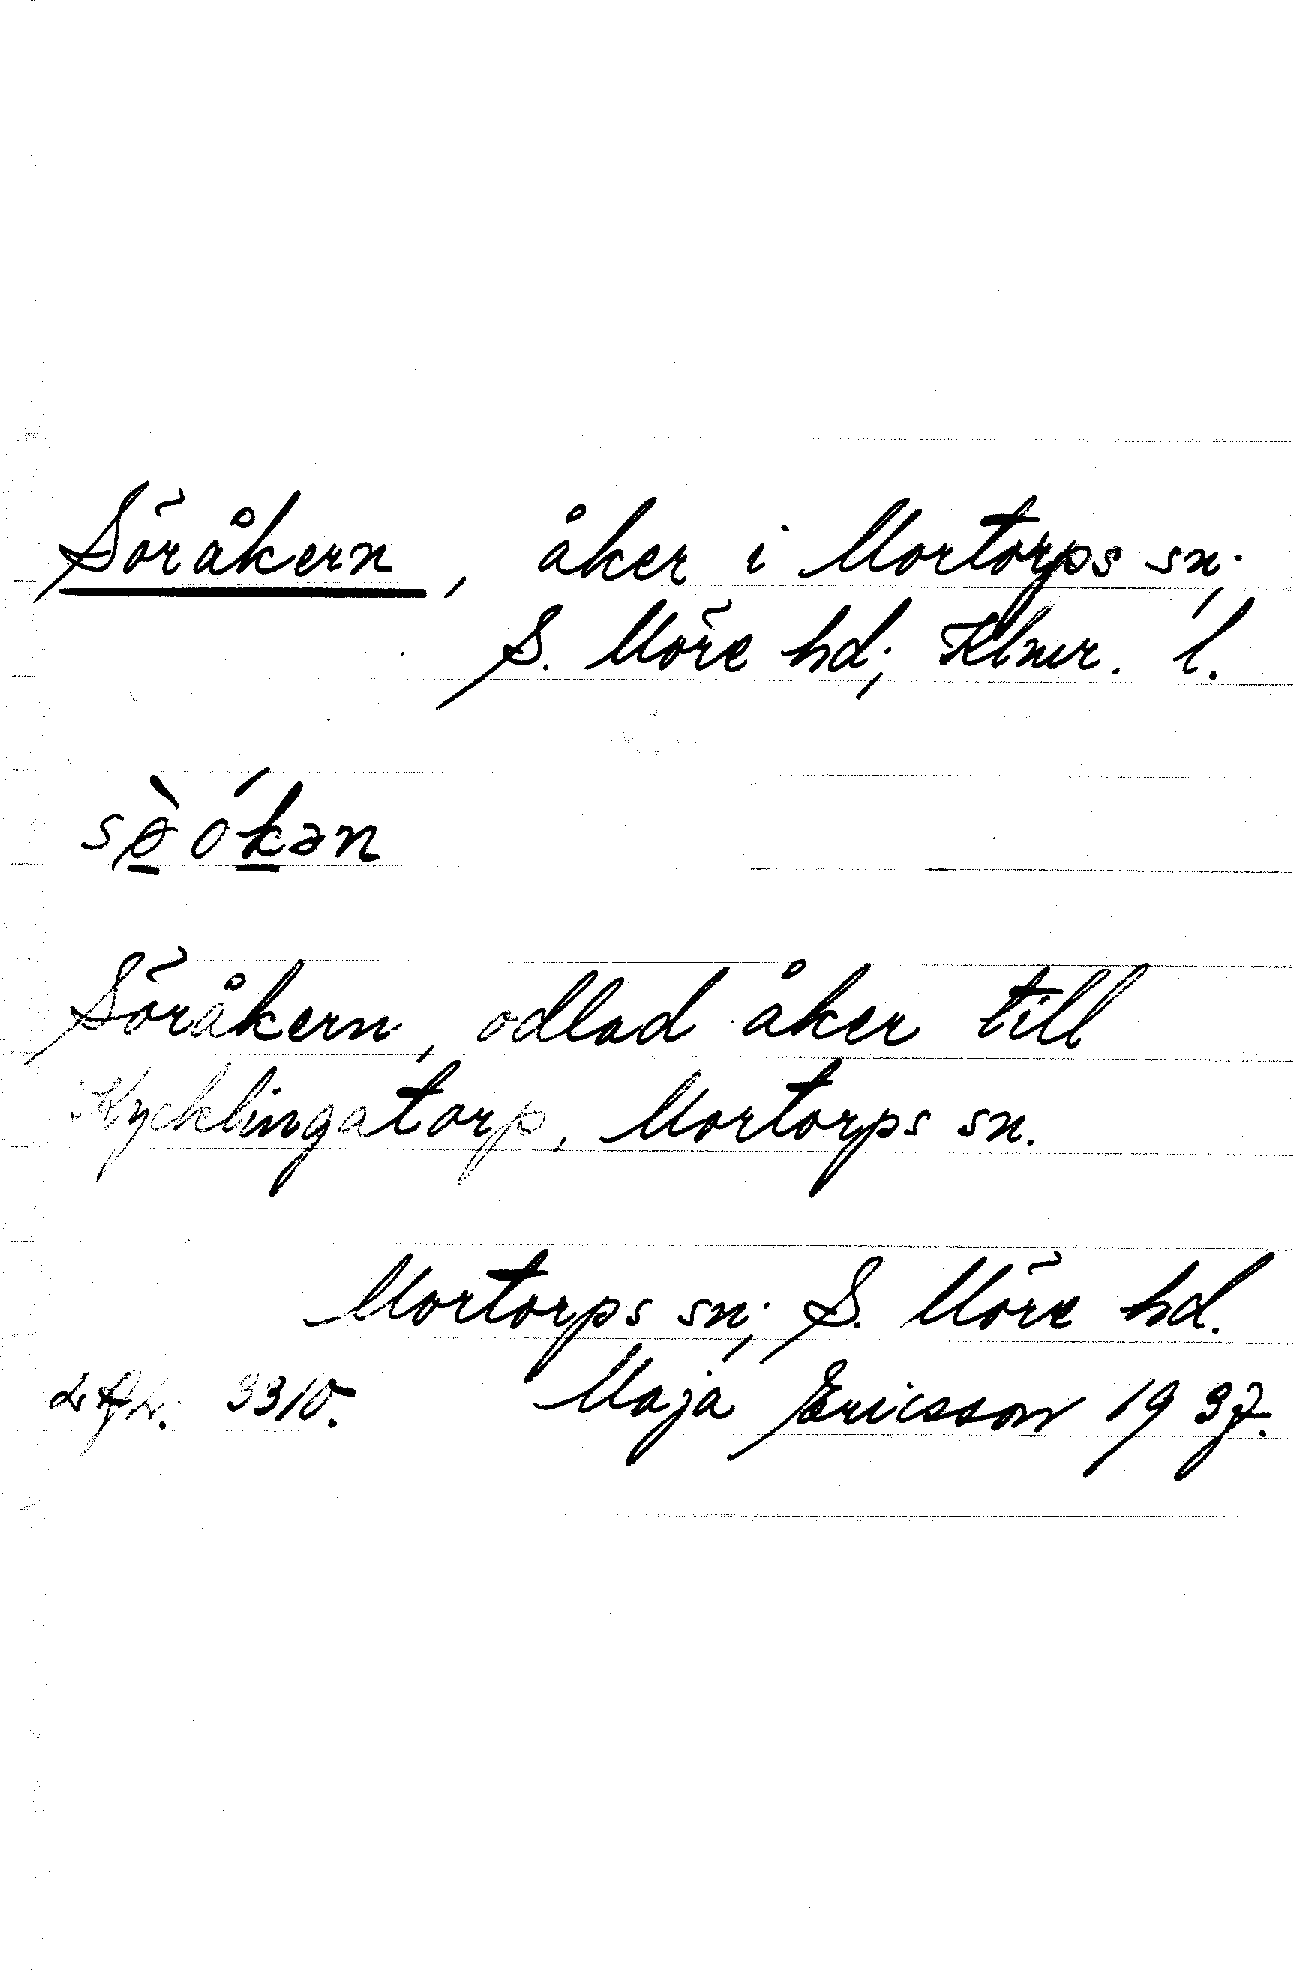 Söråkern, åker i Mortorps sn;
S. Möre hd; Klmr. l.
sə̀ókən
Söråkern, odlad åker till
Kycklingatorp, Mortorps sn.
Mortorps sn; S. Möre hd.
3310. Maja Ericsson 1937.